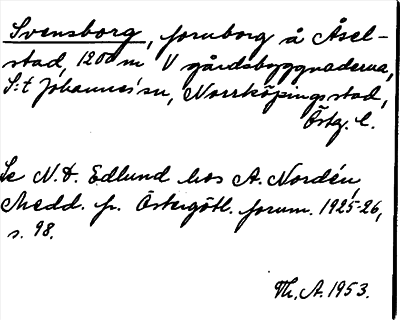 Svensborg, fornborg å Åsel-
stad, 1200 m V gårdsbyggnaderna,
S:t Johannes' sn, Norrköpings stad,
Östg. l.
Se N. D. Edlund hos A. Nordén,
Medd. fr. Östergötl. fornm. 1925-26,
s. 98.
Th. A. 1953.